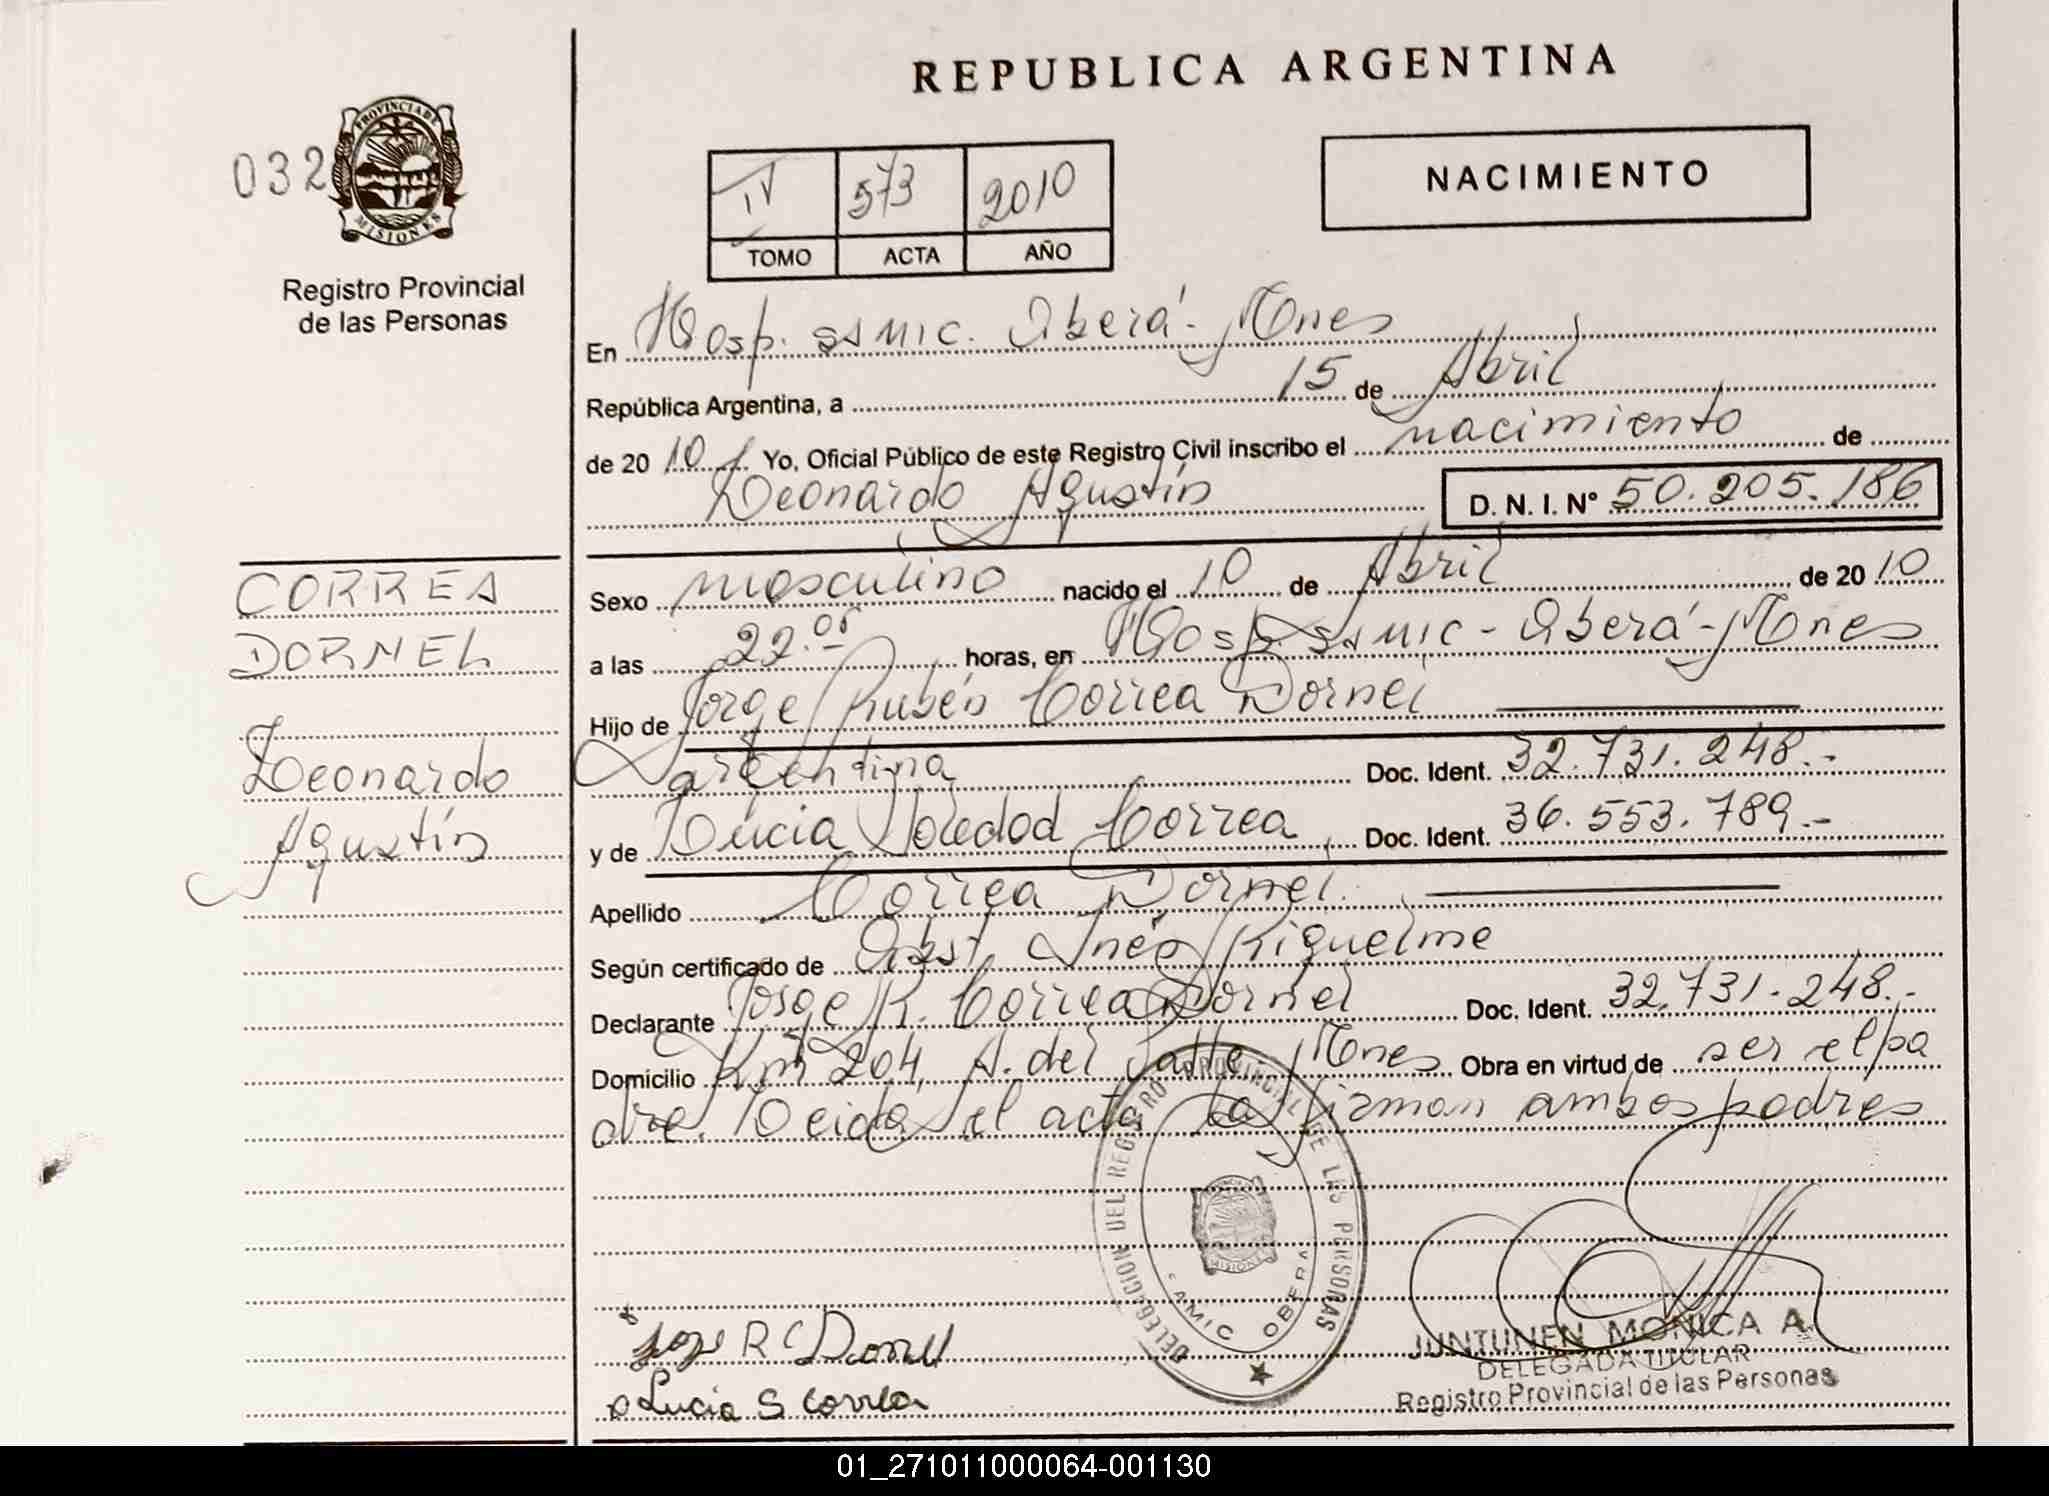 REPUBLICA ARGENTINA
032
PROVINCIA DE MISIONES
Registro Provincial
de las Personas
IV 573 2010
TOMO ACTA AÑO
NACIMIENTO
En Hosp. SAMIC. Oberá - Mnes
República Argentina, a 15 de Abril
de 2010 Yo, Oficial Público de este Registro Civil inscribo el nacimiento de
Leonardo Agustín D. N. I. N° 50.205.186
CORREA
DORNEL
Leonardo
Agustín
Sexo masculino nacido el 10 de Abril de 2010
a las 22.05 horas, en Hosp. SAMIC - Oberá - Mnes
Hijo de Jorge Rubén Correa Dornel
argentina Doc. Ident. 32.731.248.-
y de Lucia Soledad Correa Doc. Ident. 36.553.789.-
Apellido Correa Dornel.
Según certificado de Obst. Inés Riquelme
Declarante Jorge R. Correa Dornel Doc. Ident. 32.731.248.-
Domicilio Km 204, A. del Valle Mnes Obra en virtud de ser el pa
dre. Leida el acta la firman ambos padres
DELEGACION DEL REGISTRO PROVINCIAL DE LAS PERSONAS
MISIONES
SAMIC OBERA
Jorge R C Dornel
Lucia S Correa
JUNTUNEN MONICA A.
DELEGADA TITULAR
Registro Provincial de las Personas
01_271011000064-001130